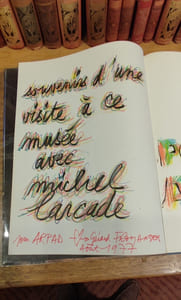 souvenirs d'une
visite à ce
musée
avec
michel
Larcade
ARPAD
Août 1977